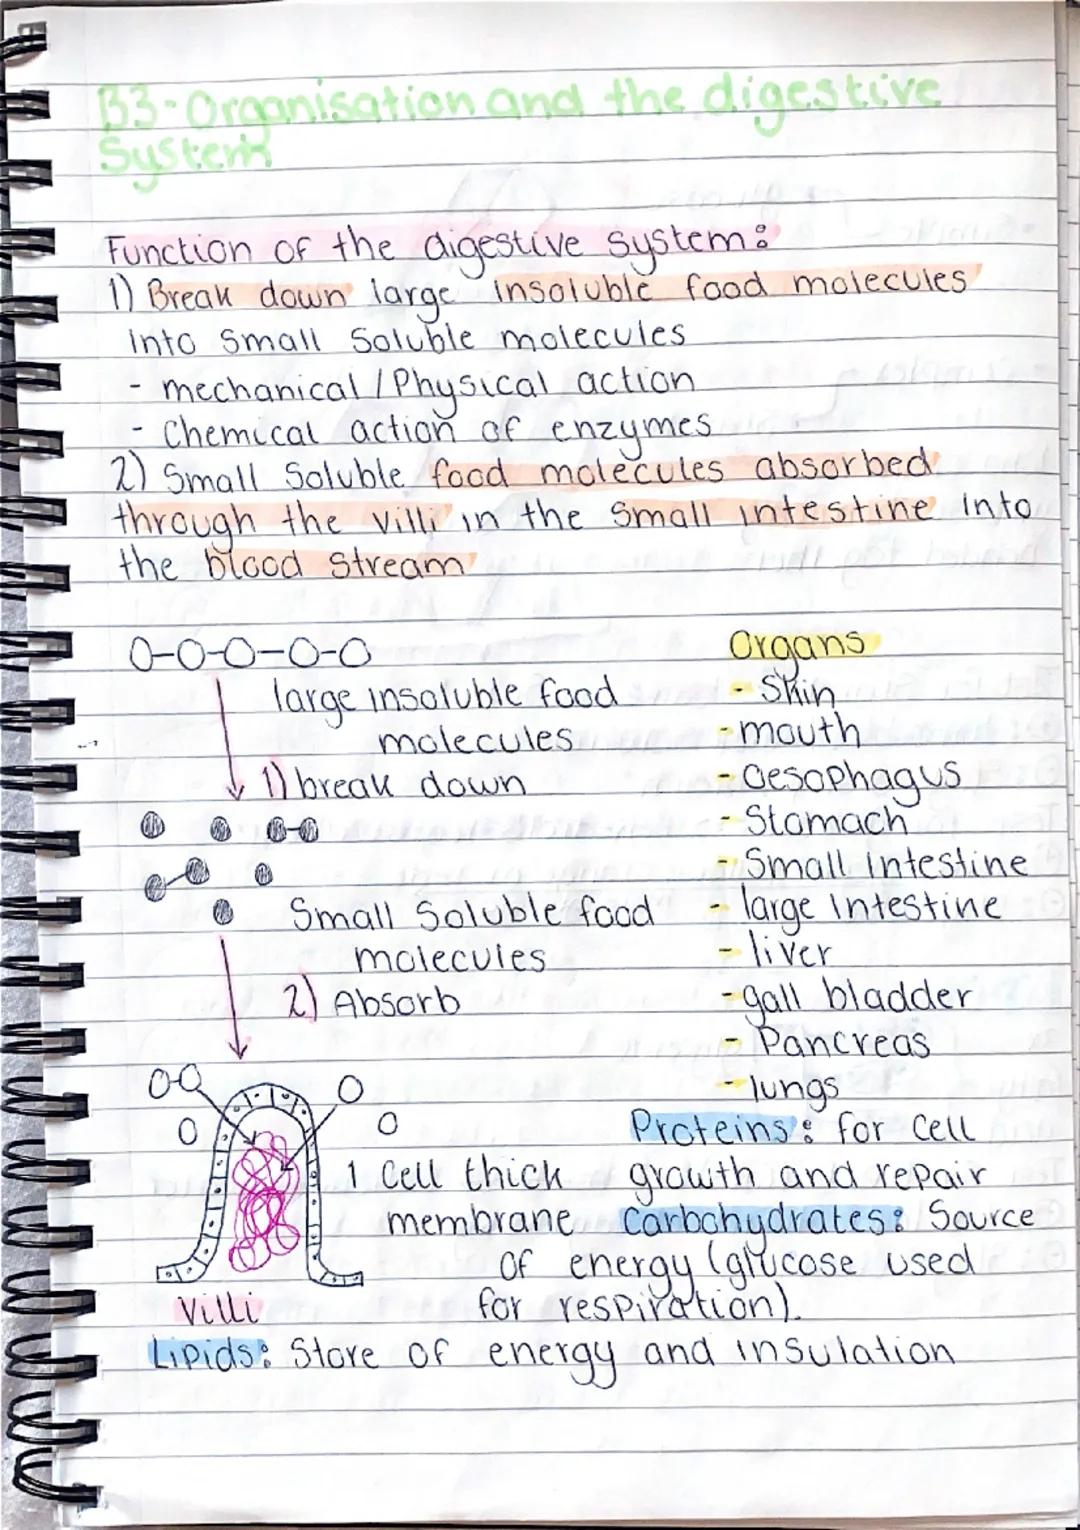 B3-Organisation and the digestive
System
Function of the digestive system:
1) Break down large insoluble food molecules
into small soluble molecules
- mechanical / Physical action
- Chemical action of enzymes
2) Small Soluble food molecules absorbed
through the villi in the small intestine into
the blood stream
large insoluble food
molecules
1) break down
Small Soluble food
molecules
2) Absorb
1 Cell thick
membrane
Villi
Organs
- Skin
- mouth
- Oesophagus
- Stomach
- Small intestine
- large intestine
- liver
- gall bladder
- Pancreas
- lungs
Proteins: for cell
growth and repair
Carbohydrates: Source
of energy (glucose used
for respiration).
Lipids: Store of energy and insulation